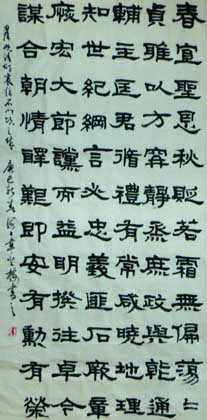 春宣聖恩秋貶若霜無偏蕩〻
貞雅以方寧靜烝庶政與乾通
輔主匡君循禮有常咸曉地理
知世紀綱言必忠義匪石厥章
宏大節讜而益明揆往卓今
謀合朝情醳艱即安有勳有榮
石門頌之
書之